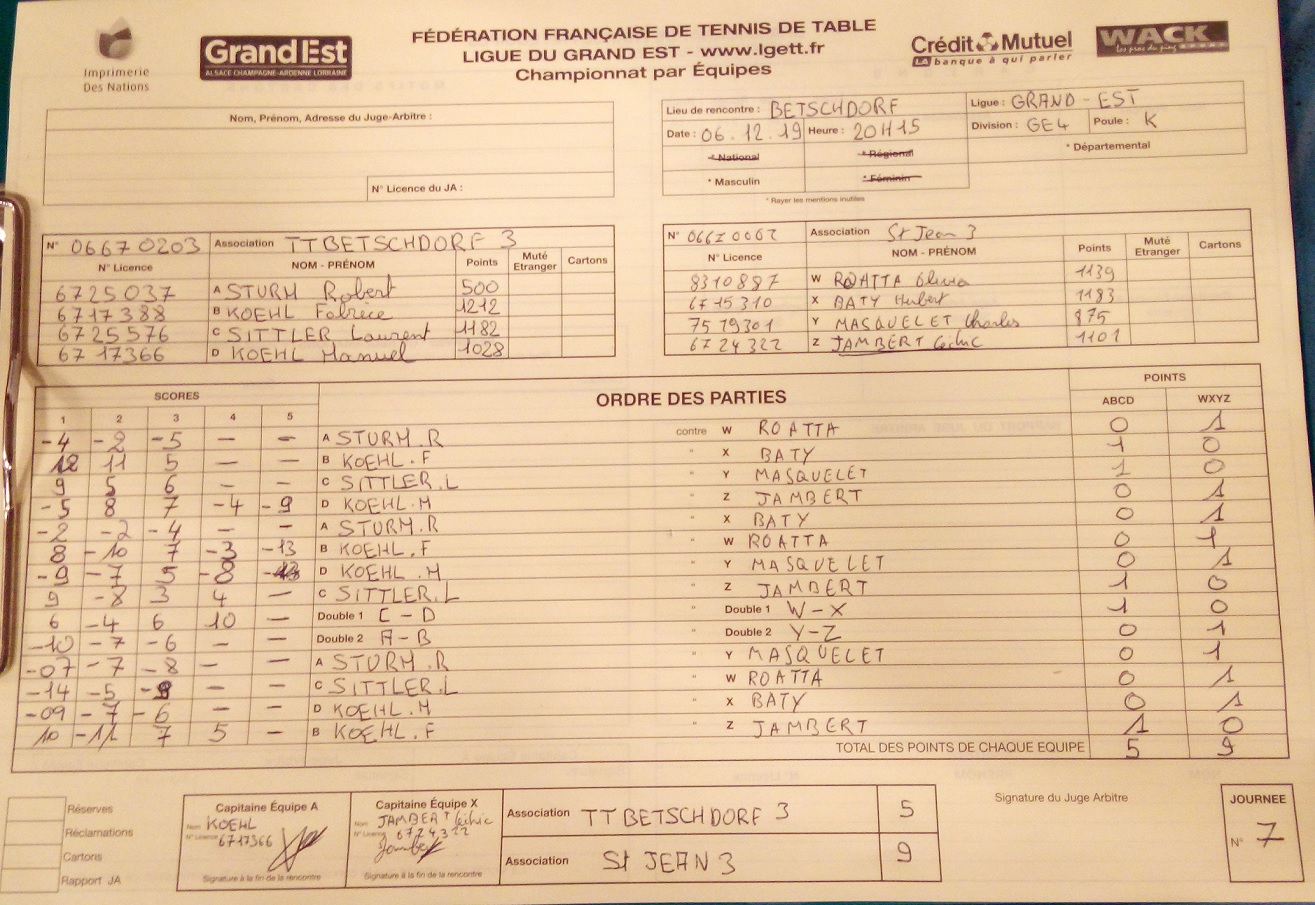 FÉDÉRATION FRANÇAISE DE TENNIS DE TABLE
LIGUE DU GRAND EST - www.lgett.fr
Championnat par Équipes
Imprimerie
Des Nations
GrandEst
ALSACE CHAMPAGNE-ARDENNE LORRAINE
Crédit Mutuel
LA banque à qui parler
WACK
Les pros du ping
Nom, Prénom, Adresse du Juge-Arbitre :
N° Licence du JA :
Lieu de rencontre : BETSCHDORF Ligue : GRAND-EST
Date : 06.12.19 Heure : 20H15 Division : GE4 Poule : K
* National * Régional * Départemental
* Masculin * Féminin
* Rayer les mentions inutiles
N° 06670203 Association TTBETSCHDORF 3
N° Licence NOM - PRÉNOM Points Muté Etranger Cartons
6725037 A STURM Robert 500
6717388 B KOEHL Fabrice 1212
6725576 C SITTLER Laurent 1182
67 17366 D KOEHL Manuel 1028
N° Association St Jean 3
N° Licence NOM - PRÉNOM Points Muté Etranger Cartons
8310887 W ROATTA Olivia 1139
67 15310 X BATY Hubert 1183
75 19301 Y MASQUELET Charles 875
67 24322 Z JAMBERT 1101
SCORES ORDRE DES PARTIES POINTS
1 2 3 4 5 ABCD WXYZ
-4 -2 -5 — — A STURM.R contre W ROATTA 0 1
12 11 5 — — B KOEHL.F " X BATY 1 0
9 5 6 — — C SITTLER.L " Y MASQUELET 1 0
-5 8 7 -4 -9 D KOEHL.M " Z JAMBERT 0 1
-2 -2 -4 — — A STURM.R " X BATY 0 1
8 -10 7 -3 -13 B KOEHL.F " W ROATTA 0 1
-9 -7 5 -8 D KOEHL.M " Y MASQUELET 0 1
9 -8 3 4 — C SITTLER.L " Z JAMBERT 1 0
6 -4 6 10 — Double 1 C-D " Double 1 W-X 1 0
-10 -7 -6 — — Double 2 A-B " Double 2 Y-Z 0 1
-07 -7 -8 — — A STURM.R " Y MASQUELET 0 1
-14 -5 -9 — — C SITTLER.L " W ROATTA 0 1
-09 -7 -6 — — D KOEHL.M " X BATY 0 1
10 -11 7 5 — B KOEHL.F " Z JAMBERT 1 0
TOTAL DES POINTS DE CHAQUE EQUIPE 5 9
Réserves
Réclamations
Cartons
Rapport JA
Capitaine Équipe A
Nom KOEHL
N° Licence 6717366
Signature à la fin de la rencontre
Capitaine Équipe X
Nom JAMBERT
N° Licence 6724322
Signature à la fin de la rencontre
Association TTBETSCHDORF 3 5
Association St JEAN 3 9
Signature du Juge Arbitre
JOURNEE
N° 7